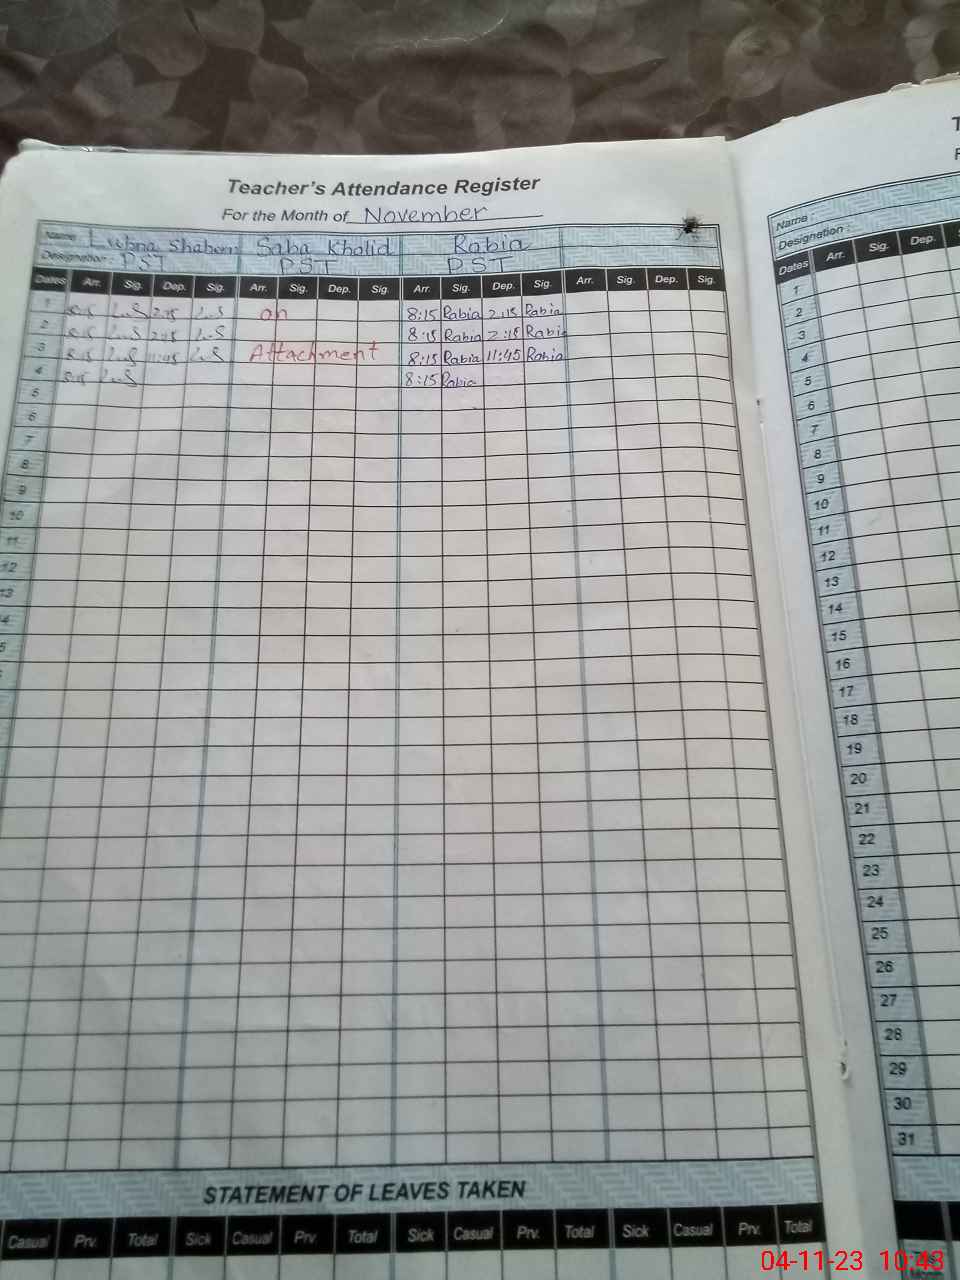 Teacher's Attendance Register
For the Month of November
Name : Lubna Shaheen Saba Khalid Rabia
Designation : PST PST PST
Dates Arr. Sig. Dep. Sig. Arr. Sig. Dep. Sig. Arr. Sig. Dep. Sig. Arr. Sig. Dep. Sig.
1 8:15 2:15 on 8:15 Rabia 2:15 Rabia
2 8:15 2:15 8:15 Rabia 2:15 Rabia
3 8:15 11:45 Attachment 8:15 Rabia 11:45 Rabia
4 8:15 8:15 Rabia
5
6
7
8
9
10
11
12
13
STATEMENT OF LEAVES TAKEN
Casual Prv. Total Sick Casual Prv. Total Sick Casual Prv. Total Sick Casual Prv. Total
Name :
Designation :
Dates Arr. Sig. Dep.
1
2
3
4
5
6
7
8
9
10
11
12
13
14
15
16
17
18
19
20
21
22
23
24
25
26
27
28
29
30
31
04-11-23 10:43